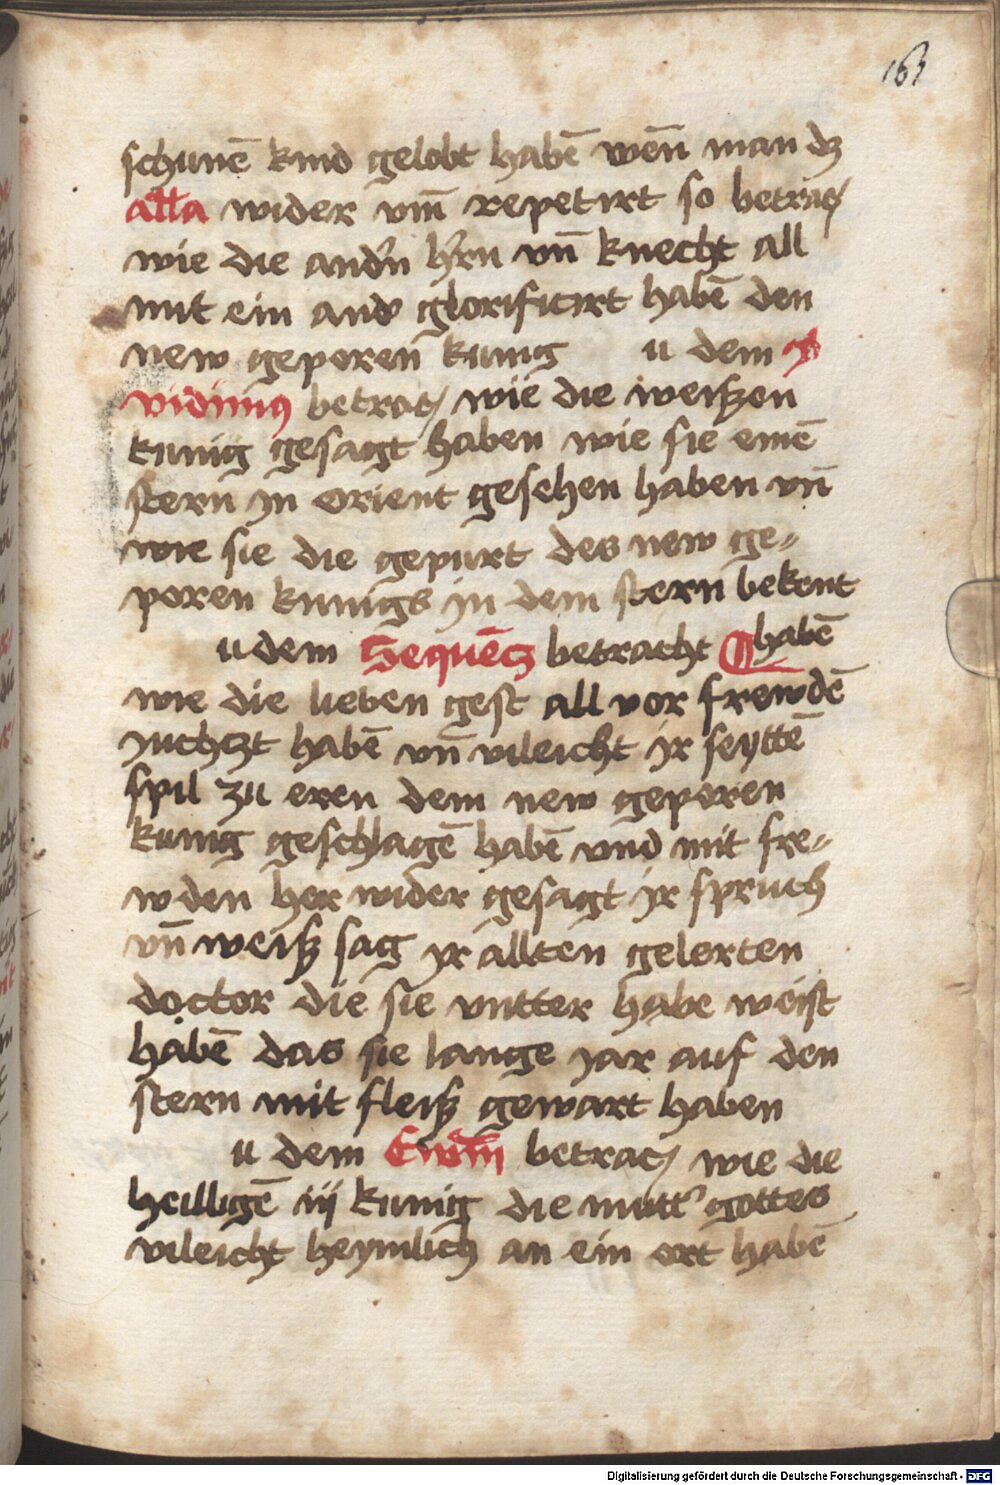 163
schunē kind gelobt habē wen̄ man dz
alla wider vm̄ repetirt so betrac
wie die andn̄ hrn vn̄ knecht all
mit ein and glorificirt haben den
new geporen kunig u dem
vidimus betrac wie die weißen
kunig gesagt haben wie sie einē
stern in orient gesehen haben vn̄
wie sie die gepurt des new ge-
poren kunigs in dem stern bekent
u dem Sequēcz betracht habē
wie die lieben gest all vor frewdē
iuchczt habē vn̄ vileicht ir seyttē
spil zu eren dem new geporen
kunig geschlagē habē vnd mit fre-
wden her wider gesagt ir spruch
vn̄ weiß sag ir allten gelerten
doctor die sie vntter habe weist
habē das sie lange iar auf den
stern mit fleiß gewart haben
u dem betrac wie die
heilligē iij kunig die mutt' gottes
vileicht heymlich an ein ort habē
Digitalisierung gefördert durch die Deutsche Forschungsgemeinschaft - DFG